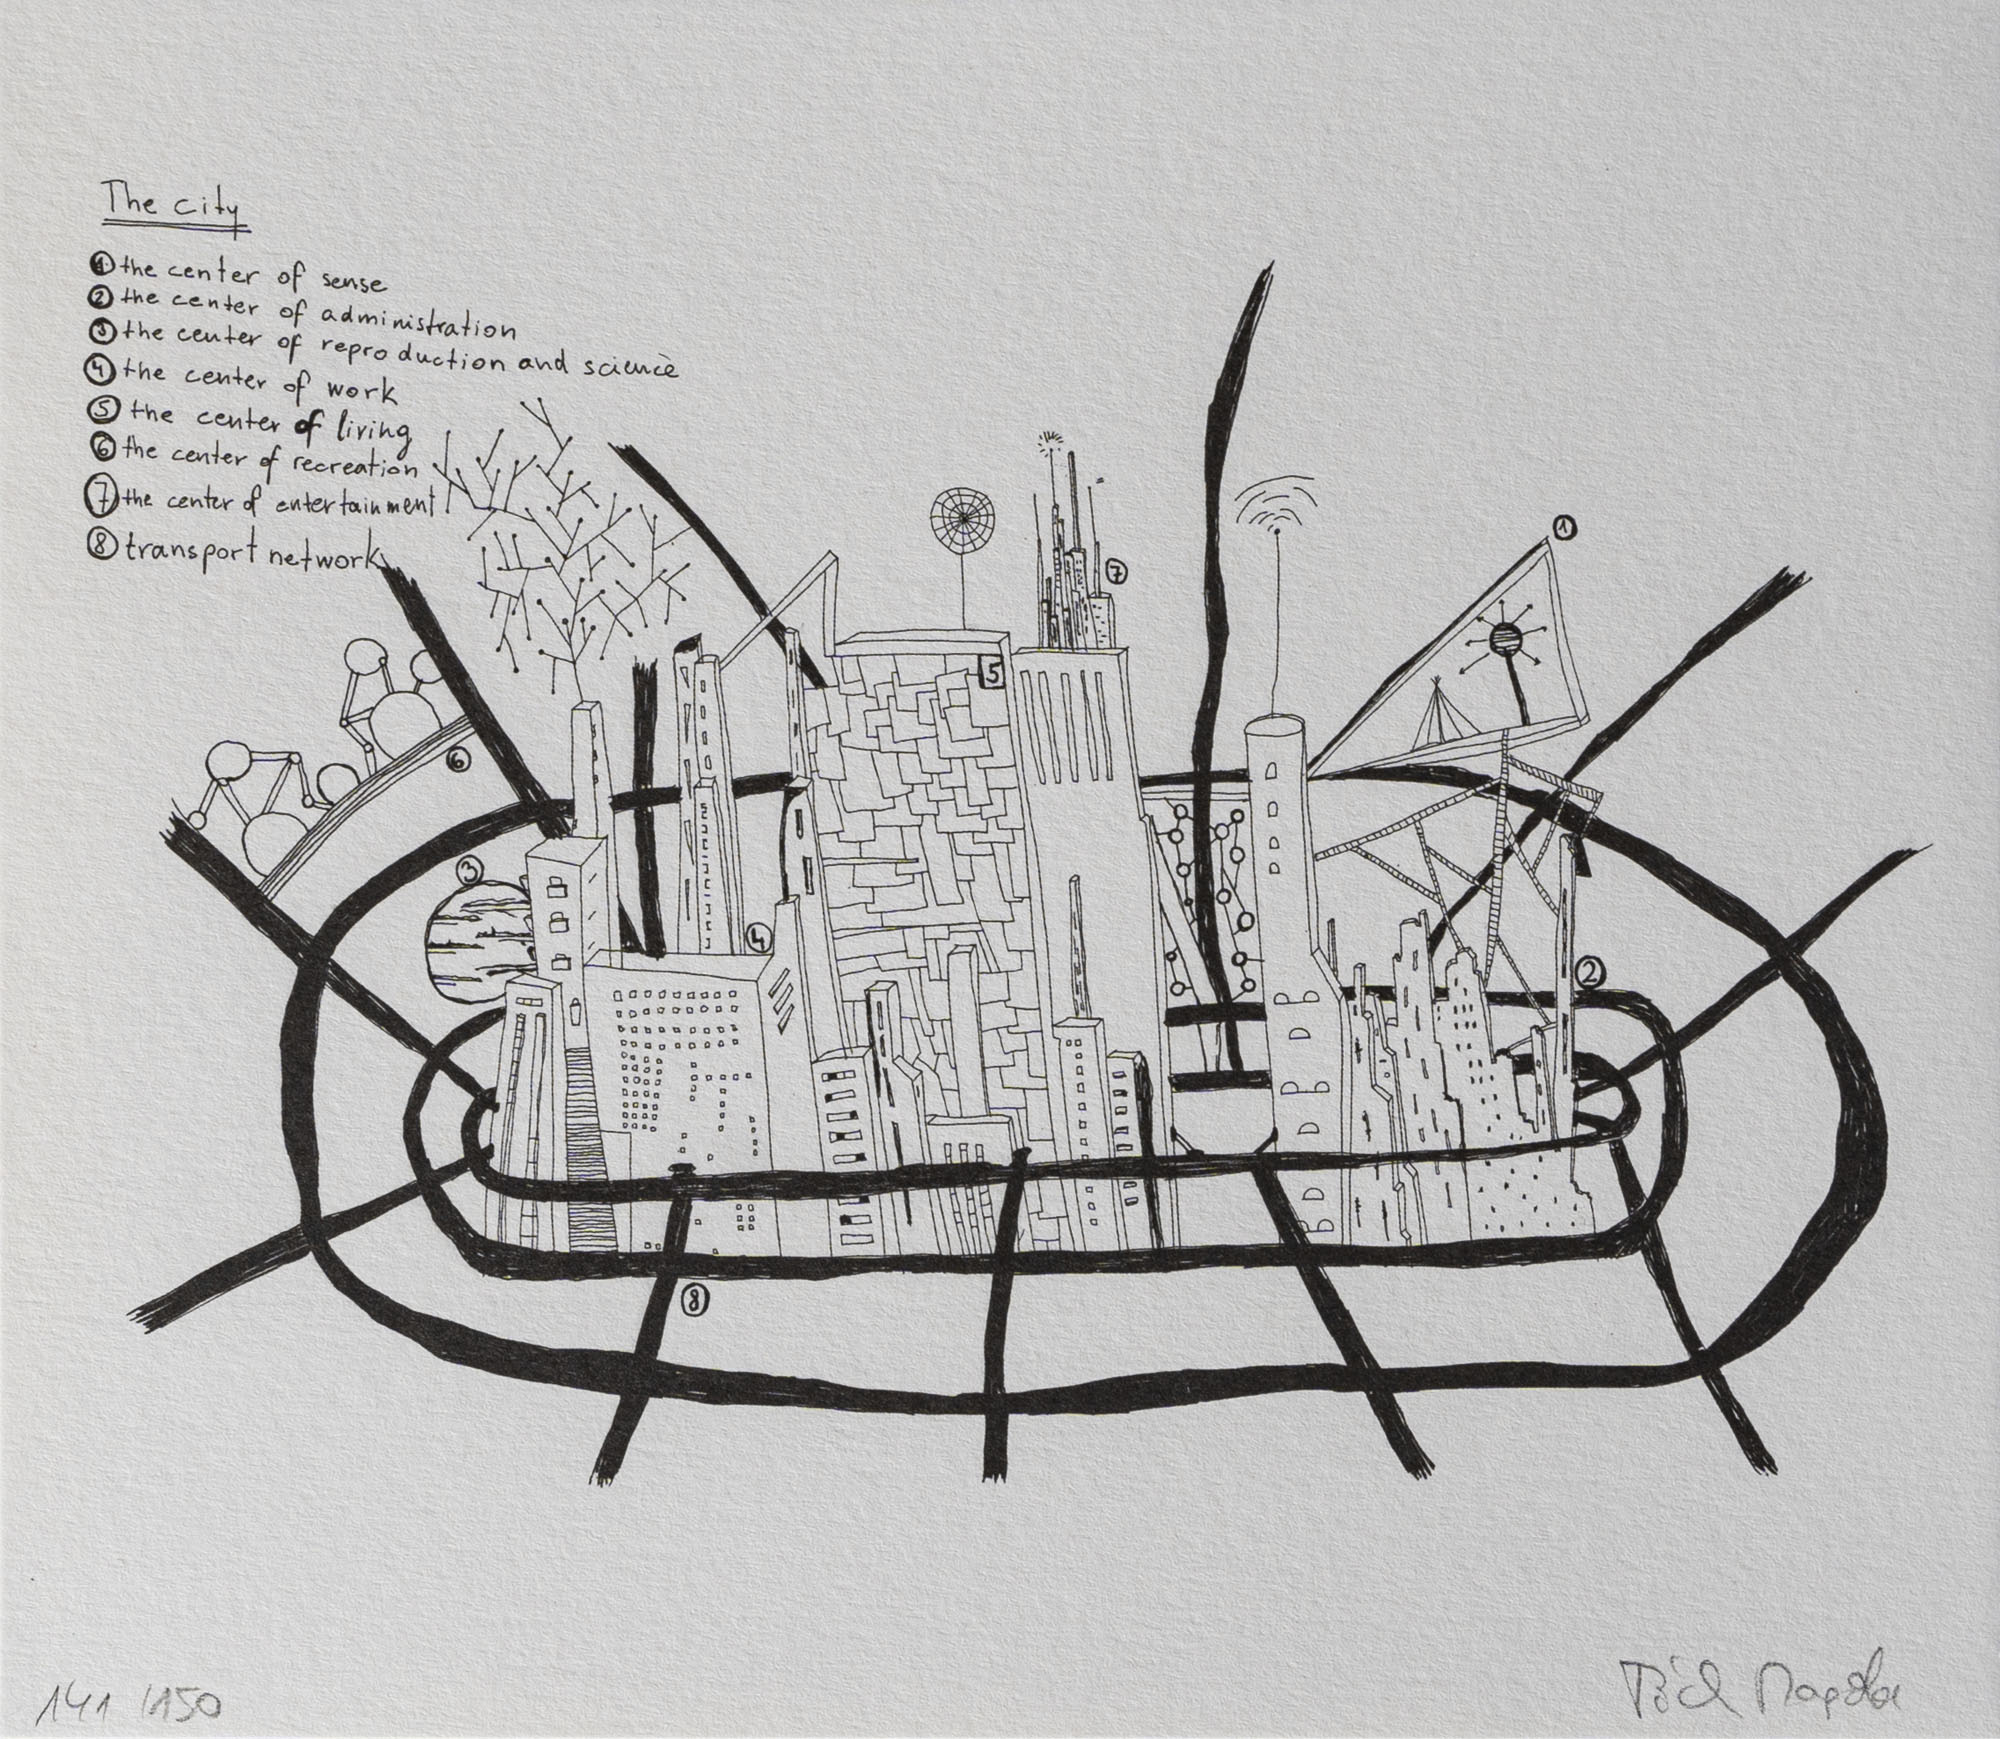 The city
1 the center of sense
2 the center of administration
3 the center of reproduction and science
4 the center of work
5 the center of living
6 the center of recreation
7 the center of entertainment
8 transport network
7
1
5
6
3
4
2
8
141 /150